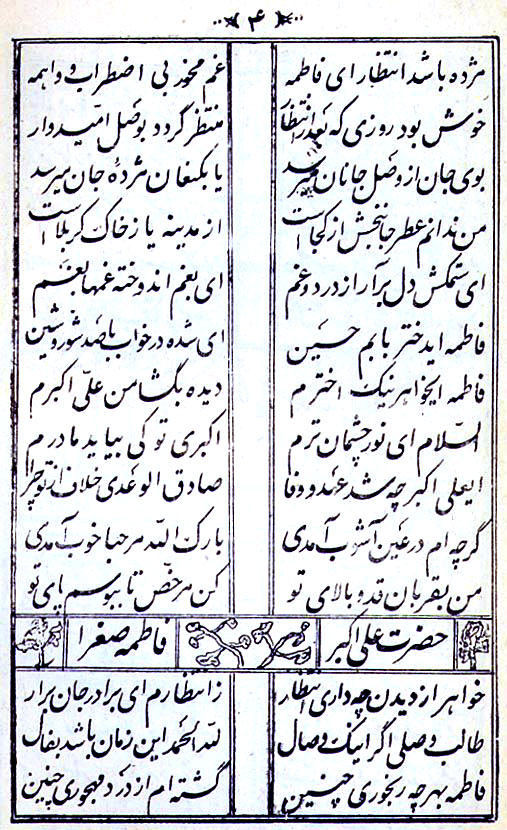 ۴
مژده باشد انتظار ای فاطمه غم مخور بی اضطراب و واهمه
خوش بود روزی که بعد از انتظار منتظر گردد بوصل امیدوار
بوی جان از وصل جانان میرسد یا بکنعان مژدهٔ جان میرسد
من ندانم عطر جانبخش از کجاست از مدینه یا ز خاک کربلاست
ای ستمکش دل برآر از درد و غم ای بغم اندوخته غمها بغم
فاطمه ایدختر بابم حسین ای شده در خواب با صد شور و شین
فاطمه ایخواهر نیک اخترم دیده بگشا من علی اکبرم
السلام ای نور چشمان ترم اکبری تو کی بیاید مادرم
ایعلی اکبر چه شد عهد و وفا صادق الوعدی خلاف از تو چرا
گرچه ام در عین آشوب آمدی بارک الله مرحبا خوب آمدی
من بقربان قد و بالای تو کن مرخص تا ببوسم پای تو
حضرت علی اکبر فاطمه صغرا
خواهر از دیدن چه داری انتظار ز انتظارم ای برادر جان برار
طالب وصلی اگر اینک وصال لله الحمد این زمان باشد بفال
فاطمه بهر چه رنجوری چنین گشته ام از درد مهجوری چنین